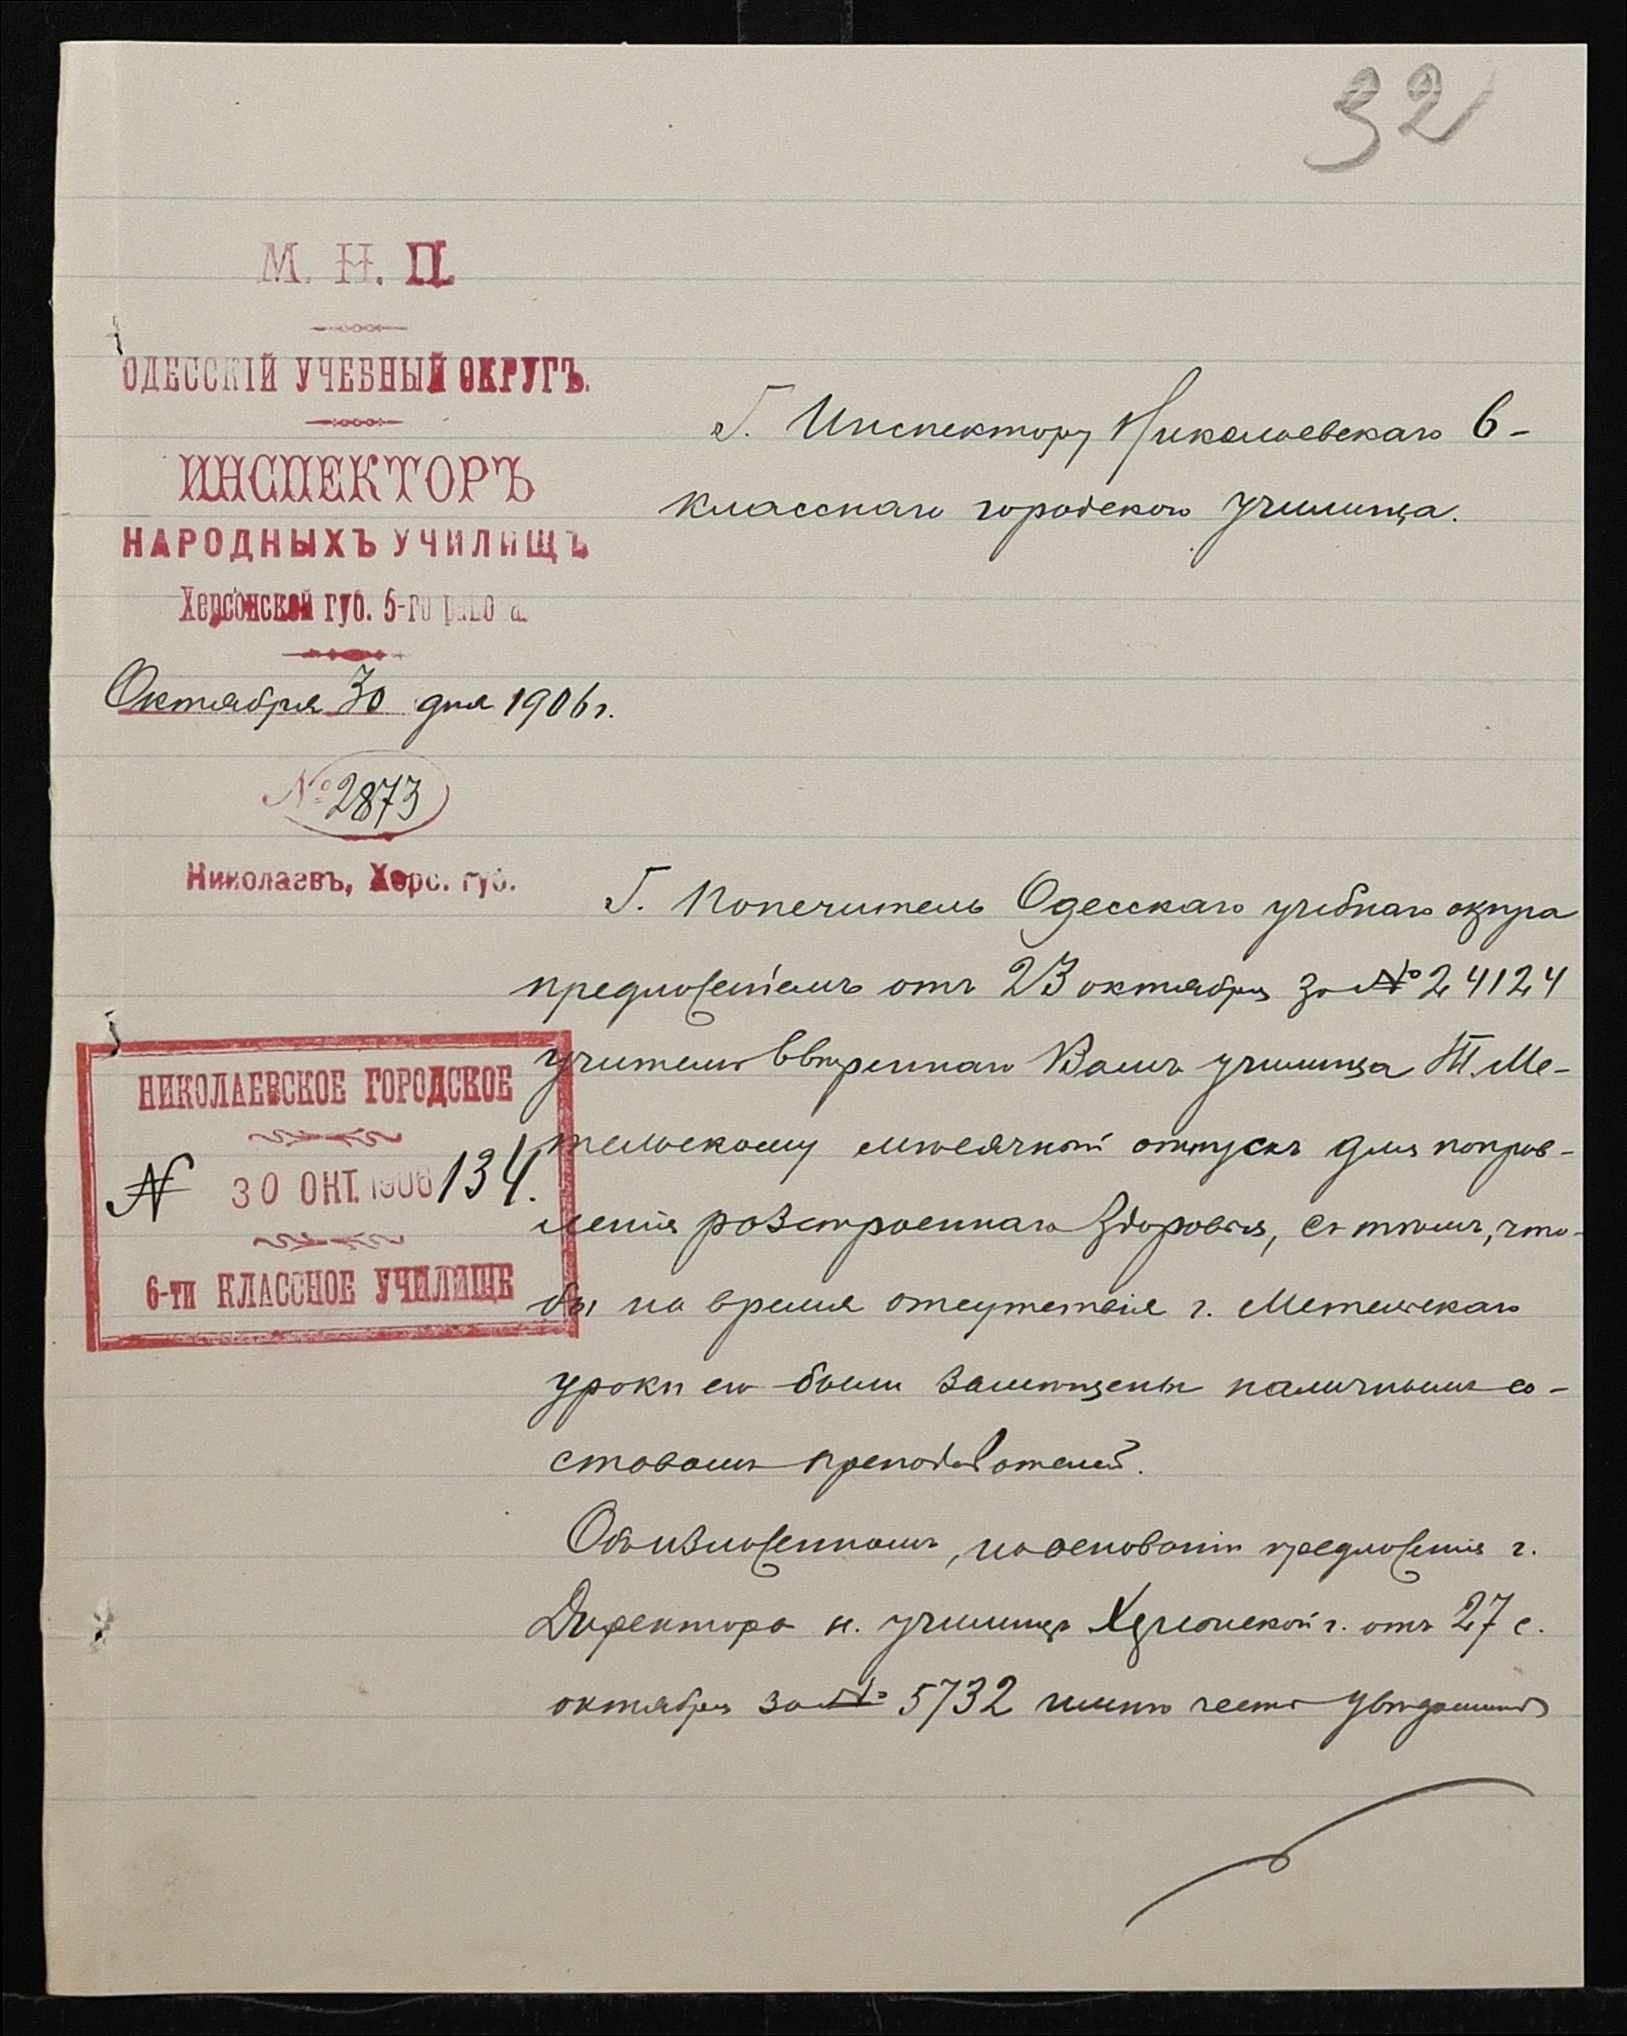 32
М. Н. П.
ОДЕССКІЙ УЧЕБНЫЙ ОКРУГЪ.
ИНСПЕКТОРЪ
НАРОДНЫХЪ УЧИЛИЩЪ
Херсонской губ. 5-го района.
Октября 30 дня 1906 г.
№ 2873
Николаевъ, Херс. губ.
Г. Инспектору Николаевскаго 6-
класснаго городского училища.
Г. Попечитель Одесскаго учебнаго округа
предложеніемъ отъ 23 октября за № 24124
учителю ввѣреннаго Вамъ училища Т. Ме-
тельскому мѣсячный отпускъ для поправ-
ленія разстроеннаго здоровья, съ тѣмъ, что-
бы на время отсутствія г. Метельскаго
уроки его были замѣщены наличнымъ со-
ставомъ преподавателей.
Объ изложенномъ, на основаніи предложенія г.
Директора н. училищъ Херсонской г. отъ 27 с.
октября за № 5732 имѣю честь увѣдомить
НИКОЛАЕВСКОЕ ГОРОДСКОЕ
№ 30 ОКТ. 1906 134.
6-ти КЛАССНОЕ УЧИЛИЩЕ